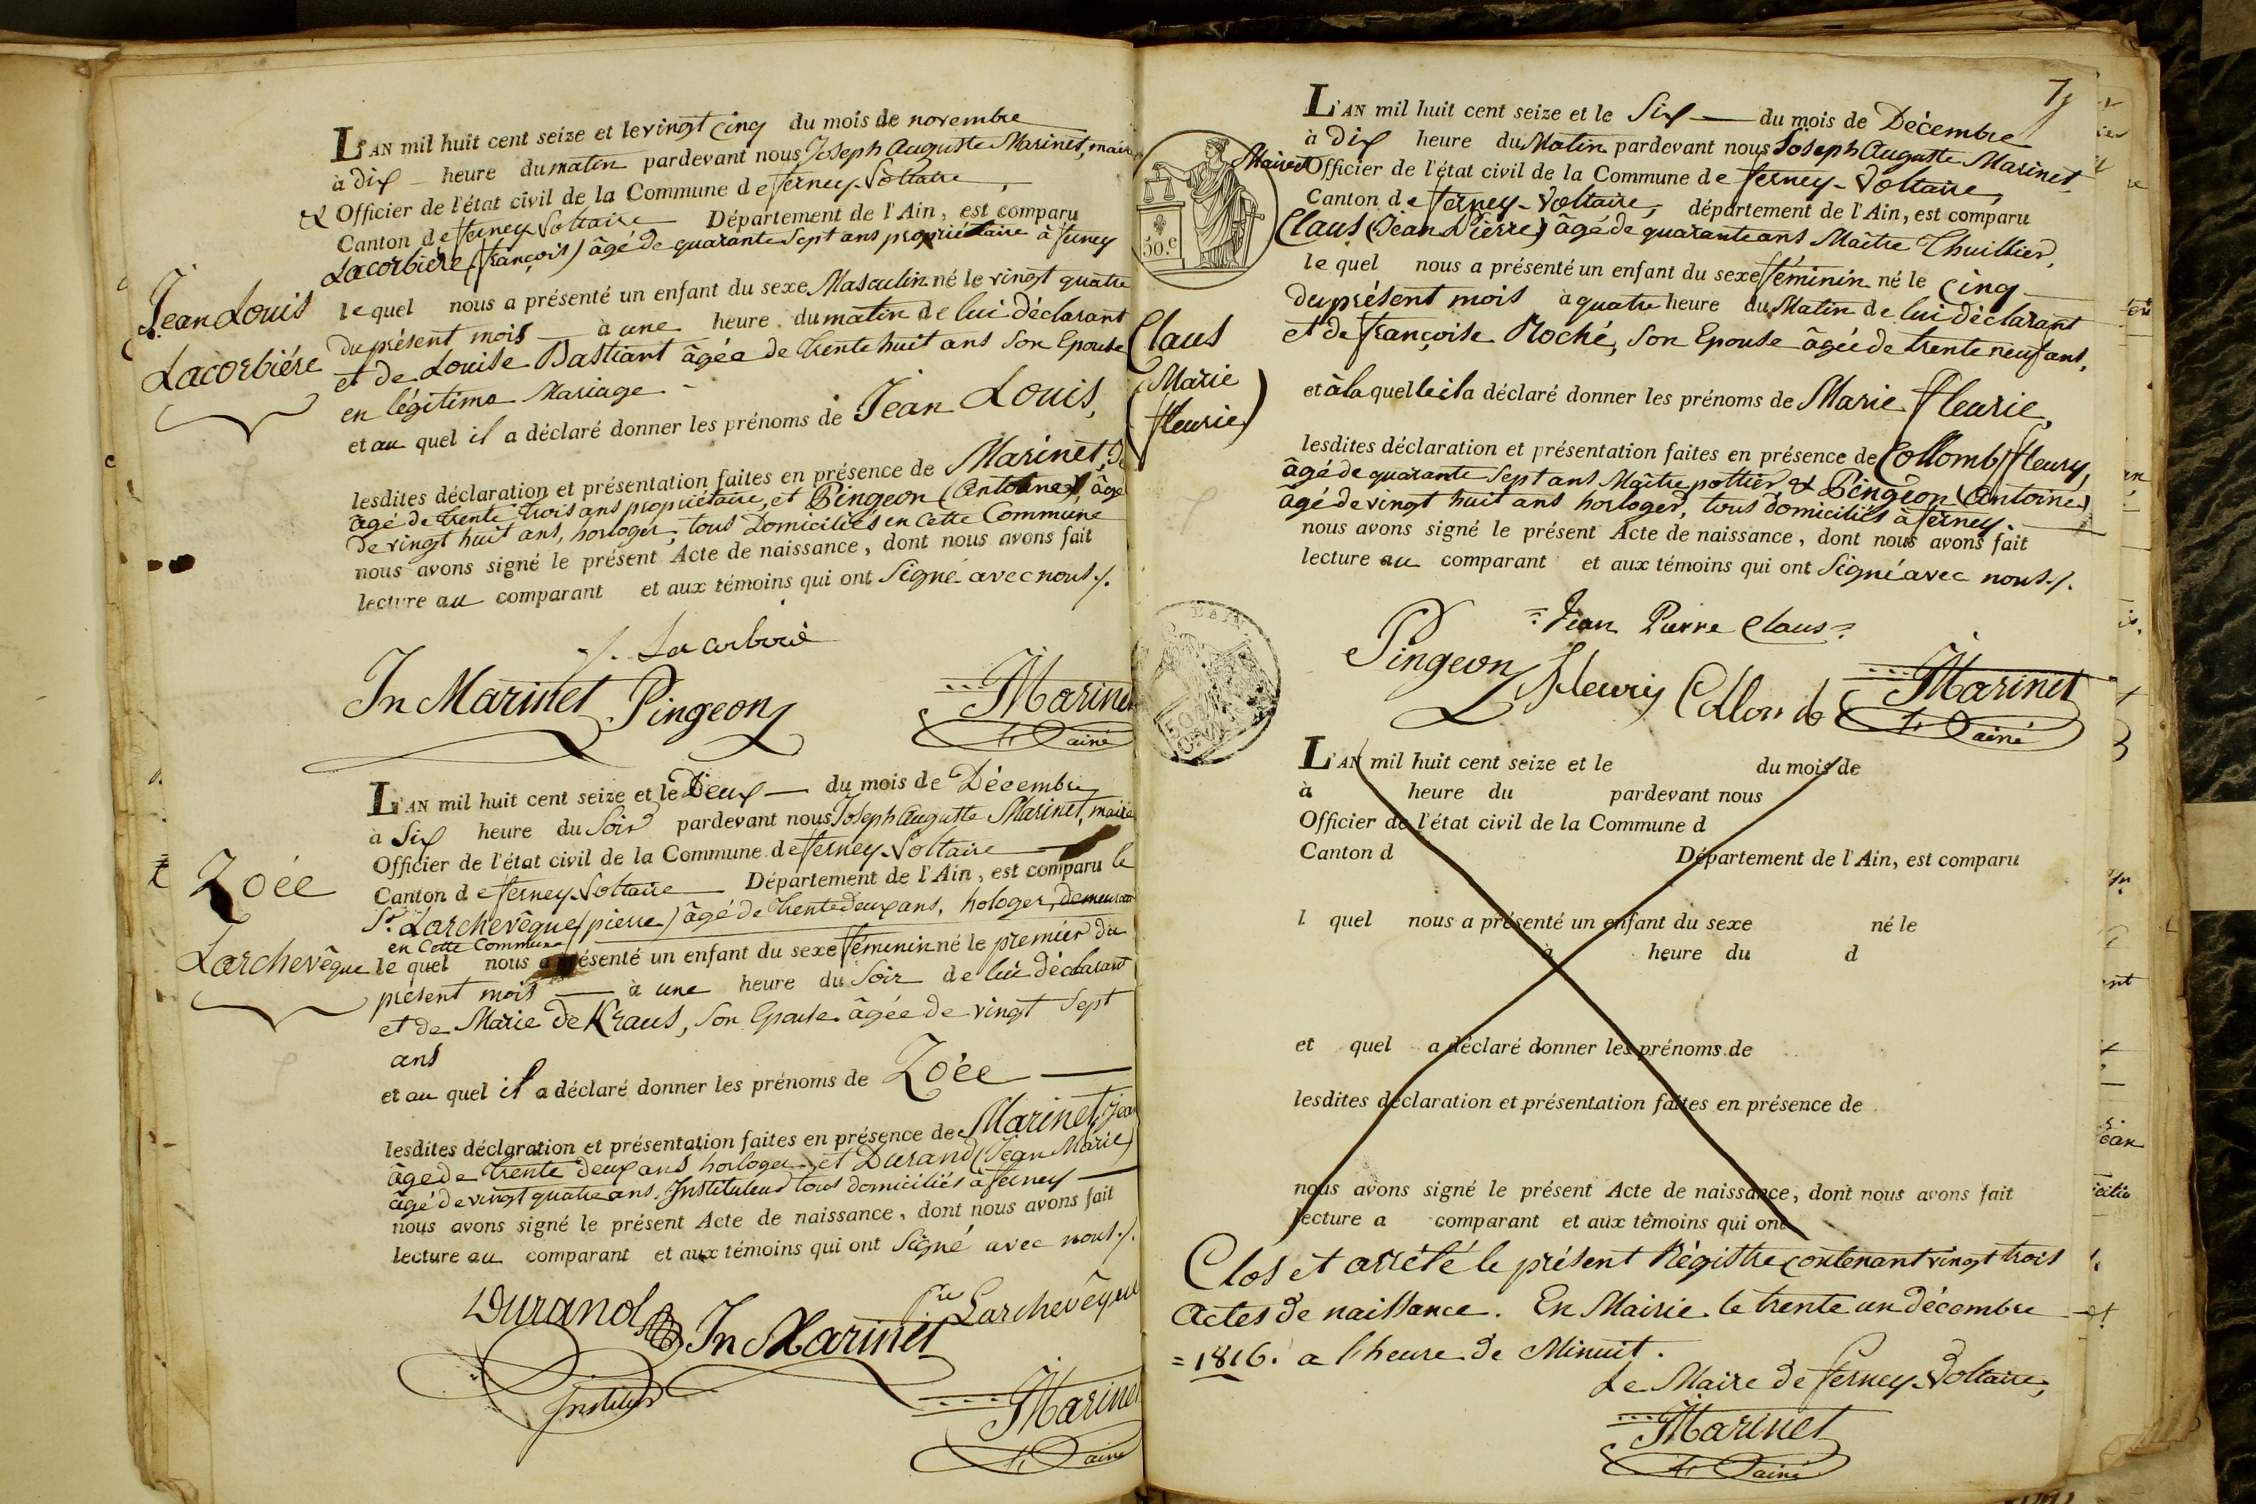 L'AN mil huit cent seize et le vingt cinq du mois de novembre
à dix heure du matin pardevant nous Joseph Auguste Marinet, maire
& Officier de l'état civil de la Commune de ferney-Voltaire
Canton de ferney Voltaire Département de l'Ain, est comparu
Lacorbière (françois) âgé de quarante Sept ans propriétaire à ferney
Jean Louis
Lacorbiére
le quel nous a présenté un enfant du sexe Masculin né le vingt quatre
du présent mois à une heure du matin de lui déclarant
et de Louise Bastiant âgée de trente huit ans Son Epouse
en légitime Mariage
et au quel il a déclaré donner les prénoms de Jean Louis,
lesdites déclaration et présentation faites en présence de Marinet,
âgé de trente trois ans propriétaire, et Pingeon (Antoine), âgé
de vingt huit ans, horloger, tous Domiciliés en Cette Commune
nous avons signé le présent Acte de naissance, dont nous avons fait
lecture au comparant et aux témoins qui ont Signé avec nous./.
Jn Marinet Pingeon Marinet
ainé
L'AN mil huit cent seize et le Deux du mois de Décembre
à Six heure du Soir pardevant nous Joseph Auguste Marinet, maire
Officier de l'état civil de la Commune de ferney-Voltaire
Canton de ferney Voltaire Département de l'Ain, est comparu le
Sr. Larchevêque (pierre) âgé de trente deux ans, hologer, demeurant
en Cette Commune
Zoée
Larchevêque
le quel nous a présenté un enfant du sexe féminin né le premier du
présent mois à une heure du Soir de lui déclarant
et de Marie de Kraus, Son Epouse âgée de vingt Sept
ans
et au quel il a déclaré donner les prénoms de Zoée
lesdites déclaration et présentation faites en présence de Marinet, Jean
âgé de trente deux ans horloger et Durand (Jean Marie)
âgé de vingt quatre ans, Instituteur tous domiciliés à ferney
nous avons signé le présent Acte de naissance, dont nous avons fait
lecture au comparant et aux témoins qui ont Signé avec nous./.
Durand Jn Marinet Pre Larchevêque
Marinet
ainé
L'AN mil huit cent seize et le Six du mois de Décembre
à dix heure du Matin pardevant nous Joseph Auguste Marinet
Maire et Officier de l'état civil de la Commune de ferney-Voltaire,
Canton de ferney-Voltaire, département de l'Ain, est comparu
Claus (Jean Pierre) âgé de quarante ans Maître Thuillier,
50.c
Claus
(Marie
fleurie)
le quel nous a présenté un enfant du sexe féminin né le cinq
du présent mois à quatre heure du Matin de lui déclarant
et de françoise Roché, Son Epouse âgée de trente neuf ans,
et à la quelle il a déclaré donner les prénoms de Marie fleurie,
lesdites déclaration et présentation faites en présence de Collomb fleury,
âgé de quarante Sept ans Maître pottier & Pingeon (Antoine)
âgé de vingt huit ans horloger, tous domiciliés à ferney.
nous avons signé le présent Acte de naissance, dont nous avons fait
lecture au comparant et aux témoins qui ont Signé avec nous./.
Jean Pierre Claus
Pingeon fleury Collomb Marinet
ainé
L'AN mil huit cent seize et le du mois de
à heure du pardevant nous
Officier de l'état civil de la Commune d
Canton d Département de l'Ain, est comparu
l quel nous a présenté un enfant du sexe né le
à heure du d
et quel a déclaré donner les prénoms de
lesdites déclaration et présentation faites en présence de
nous avons signé le présent Acte de naissance, dont nous avons fait
lecture a comparant et aux témoins qui ont
Clos et arrêté le présent Régistre contenant vingt trois
Actes de naissance. En Mairie le trente un décembre
=1816. a l'heure de Minuit.
Le Maire de ferney-Voltaire,
Marinet
ainé